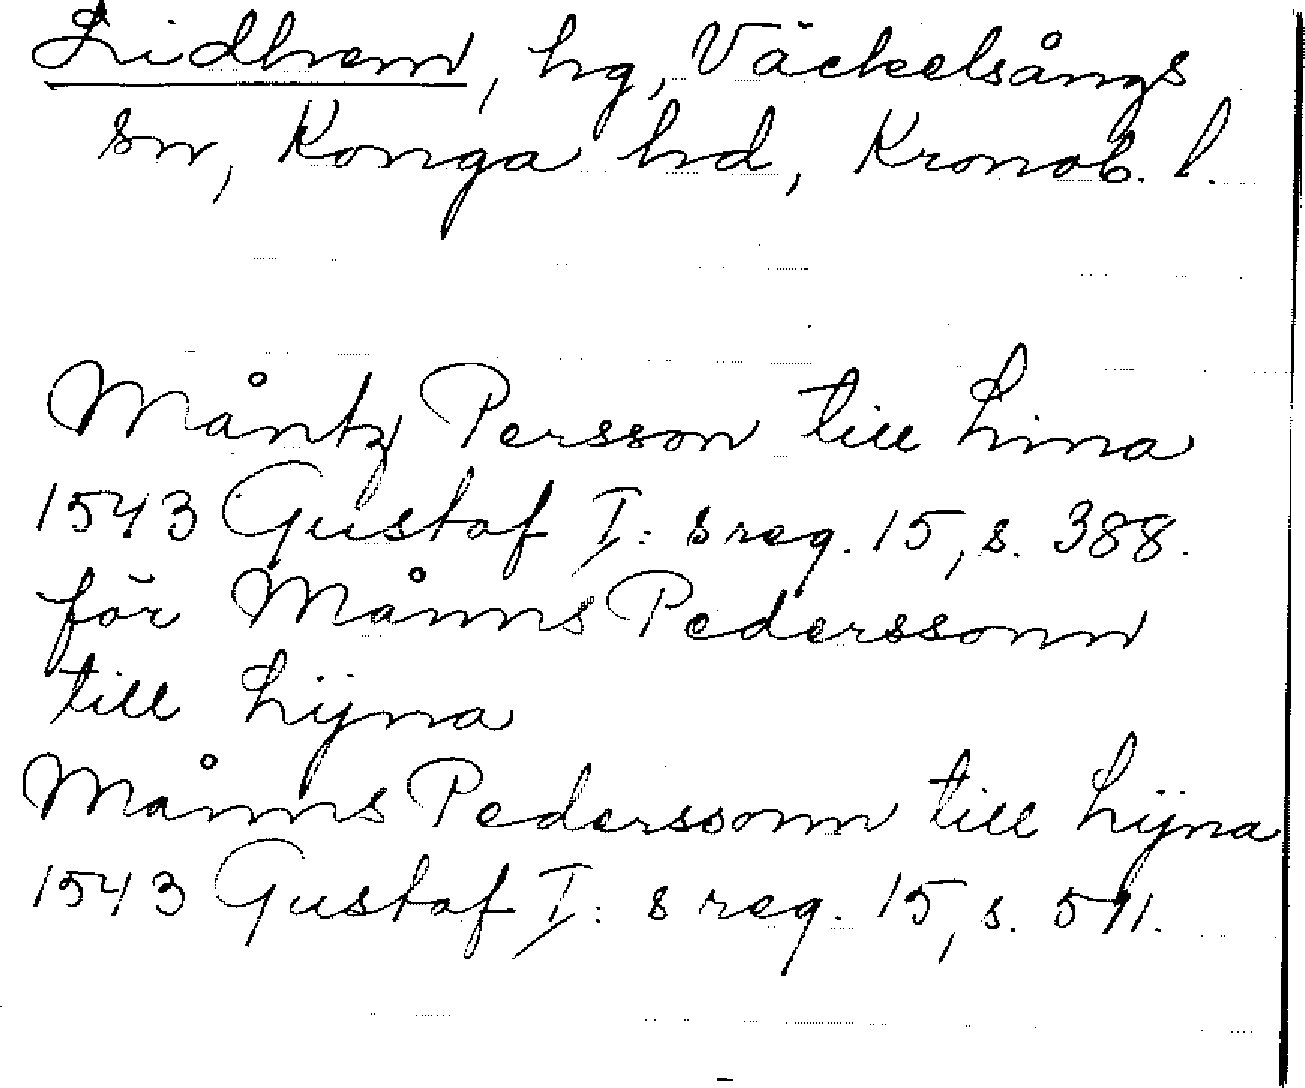 Lidhem, hg, Väckelsångs
sn, Konga hd, Kronob. l.
Måntz Persson till Lina
1543 Gustaf I: s reg. 15, s. 388.
för Månns Pederssonn
till Lijna
Månns Pederssonn till Lijna
1543 Gustaf I: s reg. 15, s.